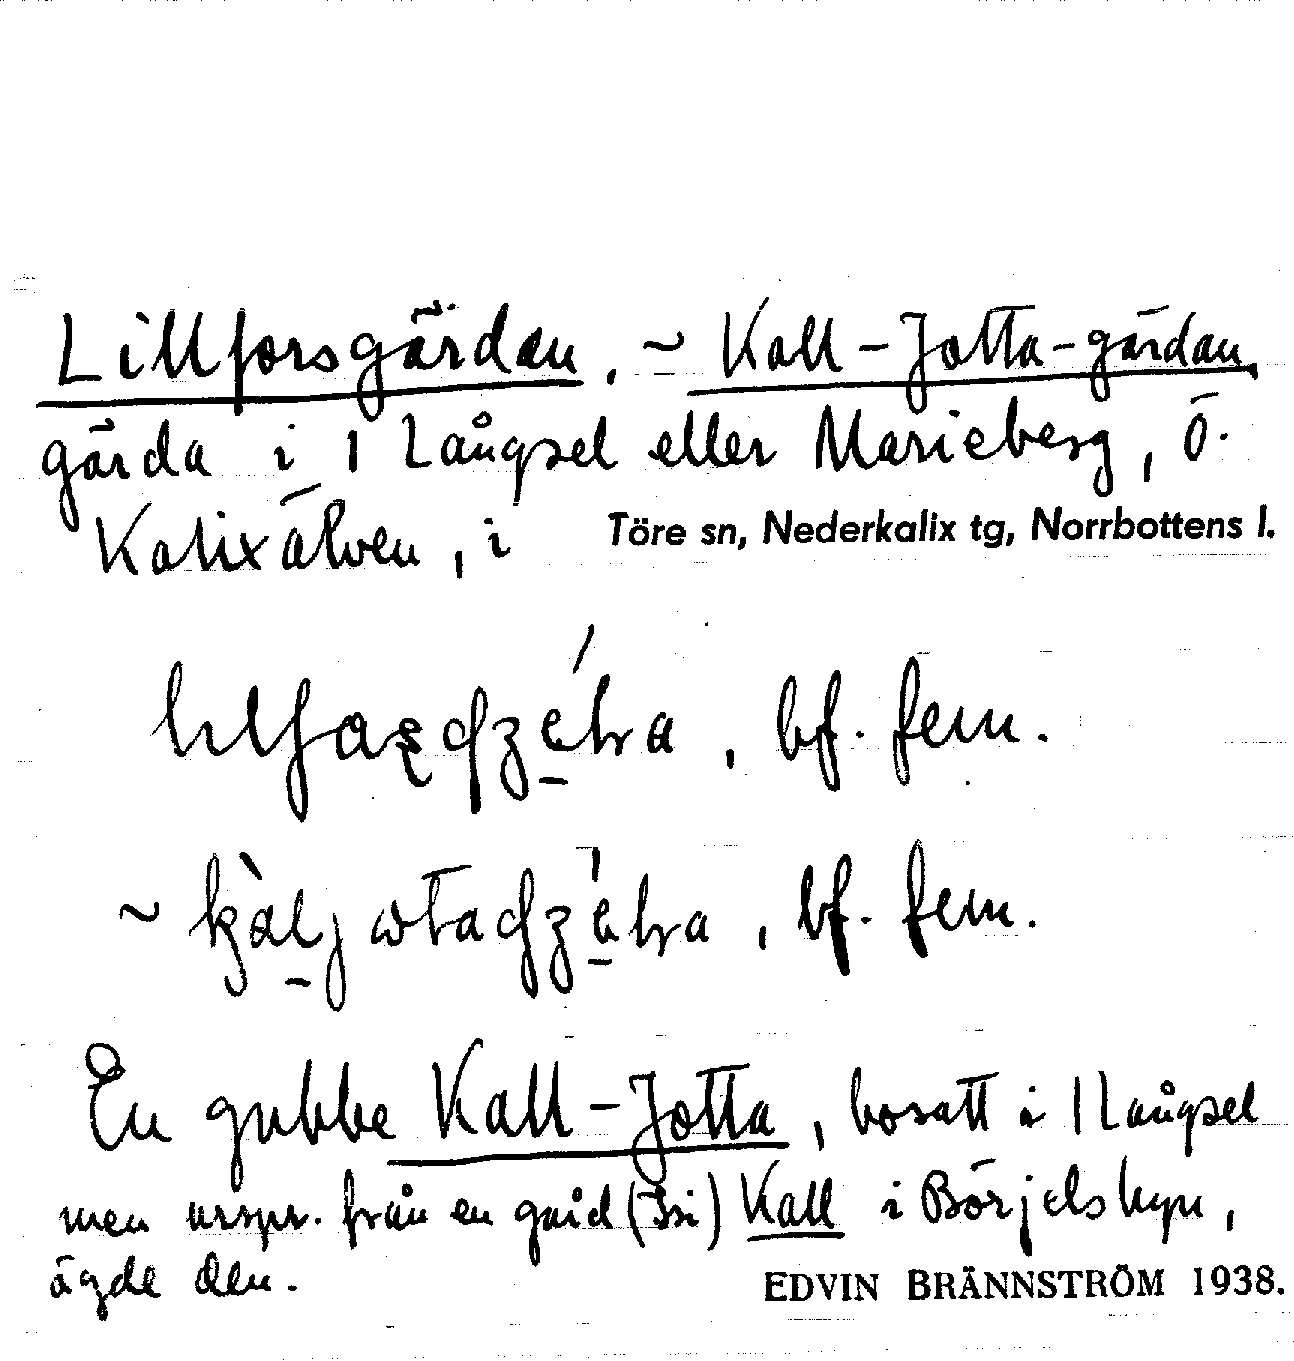 Lillforsgärdan, ~ Kall-Jotta-gärdan,
gärda i 1 Långsel eller Marieberg, ö.
Kalixälven, i Töre sn, Nederkalix tg, Norrbottens l.
bf. fem.
~ bf. fem.
En gubbe Kall-Jotta, bosatt i 1 Långsel
men urspr. från en gård (Isi) Kall i Börjelsbyn,
ägde den. EDVIN BRÄNNSTRÖM 1938.